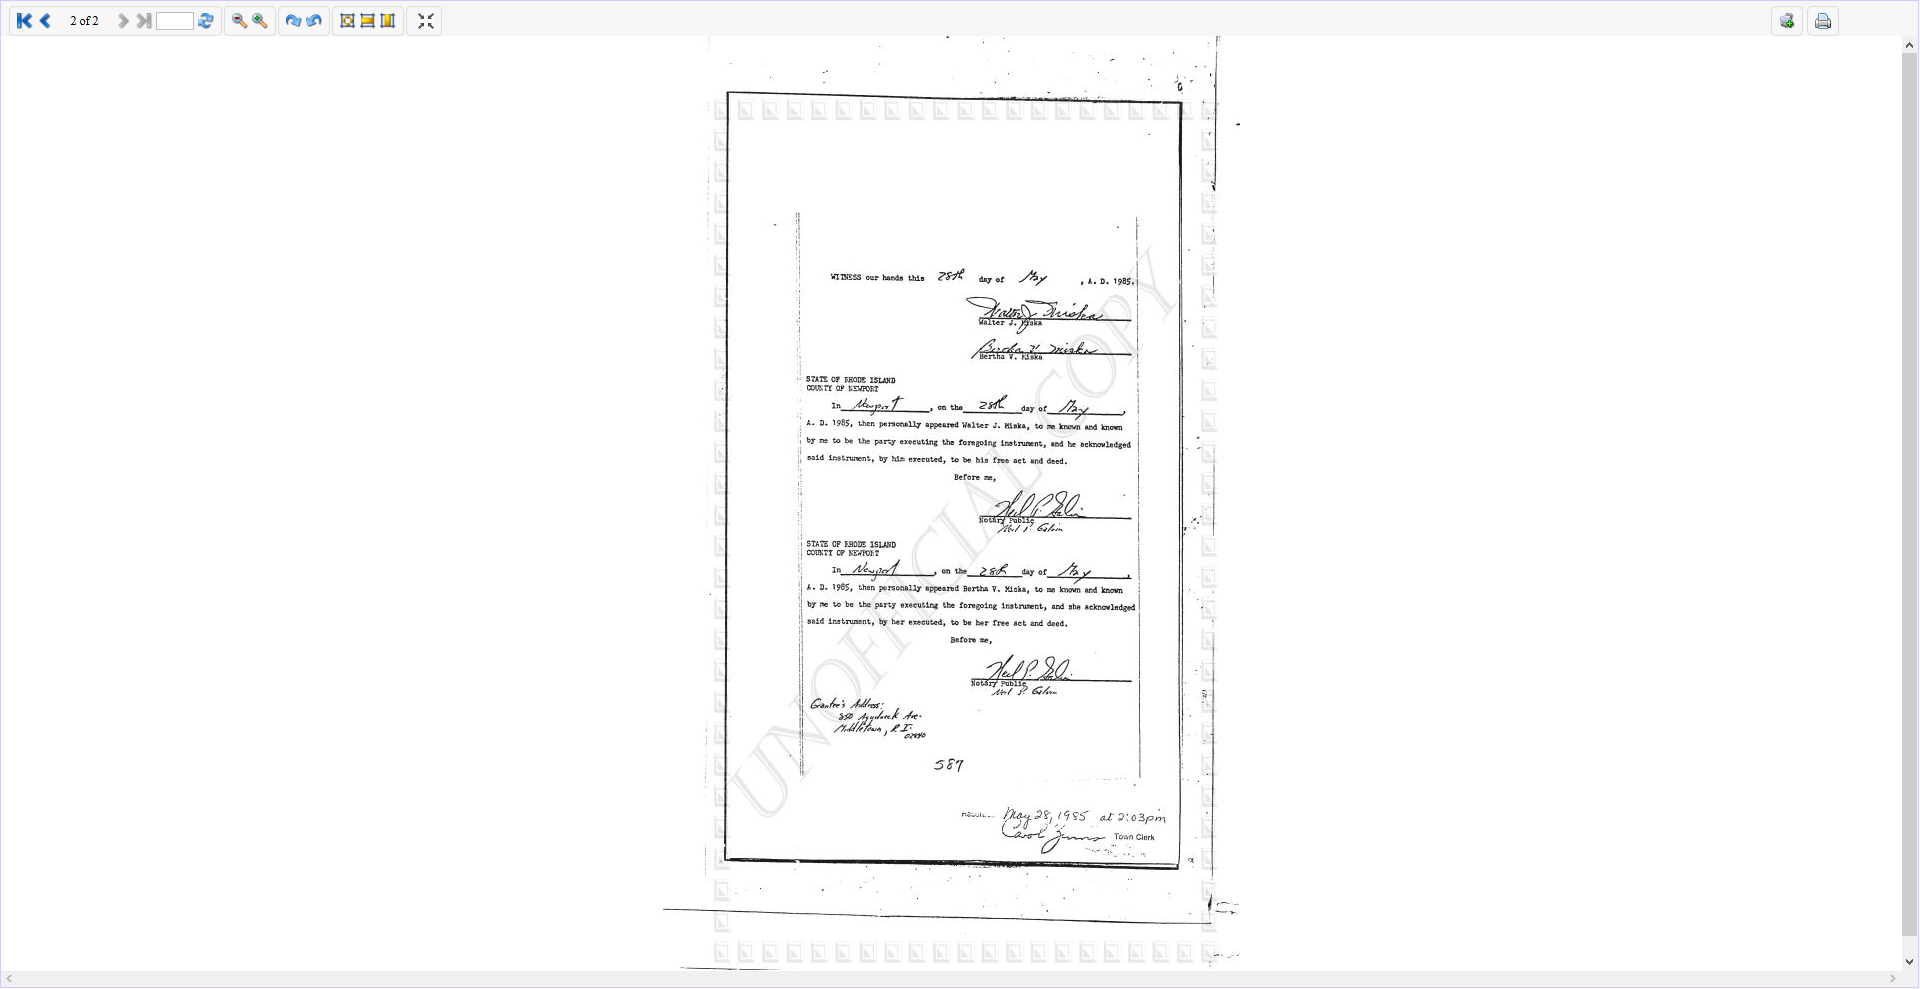 2 of 2
WITNESS our hands this 28th day of May , A. D. 1985.
Walter J. Miska
Walter J. Miska
Bertha V. Miska
Bertha V. Miska
STATE OF RHODE ISLAND
COUNTY OF NEWPORT
In Newport, on the 28th day of May,
A. D. 1985, then personally appeared Walter J. Miska, to me known and known
by me to be the party executing the foregoing instrument, and he acknowledged
said instrument, by him executed, to be his free act and deed.
Before me,
Neil P. Galvin
Notary Public
Neil P. Galvin
STATE OF RHODE ISLAND
COUNTY OF NEWPORT
In Newport, on the 28th day of May,
A. D. 1985, then personally appeared Bertha V. Miska, to me known and known
by me to be the party executing the foregoing instrument, and she acknowledged
said instrument, by her executed, to be her free act and deed.
Before me,
Neil P. Galvin
Notary Public
Neil P. Galvin
Grantee's Address:
850 Aquidneck Ave.
Middletown, R.I.
02840
587
May 28, 1985 at 2:03pm
Carol Town Clerk
UNOFFICIAL COPY